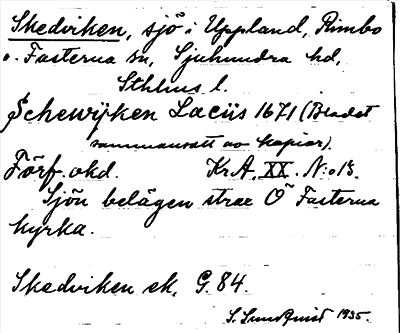 Skedviken, sjö i Uppland, Rimbo
o. Fasterna sn, Sjuhundra hd,
Sthlms l.
Schewijken Lacüs 1671 (Bladet
sammansatt av kopior).
Förf. okd. Kr.A. XX. N:o 18.
Sjön belägen strax Ö Fasterna
kyrka.
Skedviken ek. G. 84.
S. Sundquist 1935.